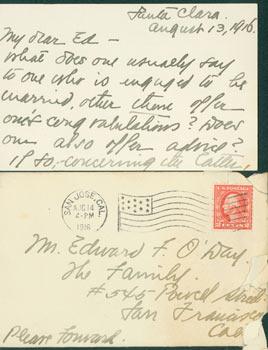 Santa Clara.
August 13, 1916.
My dear Ed -
What does one usually say
to one who is engaged to be
married, other than offer
one's congratulations? Does
one also offer advice?
If so, concerning the latter,
SAN JOSE, CAL.
AUG 14
4-PM
1916
Mr. Edward F. O'Day
The Family.
#545 Powell Street
San Francisco
Cal.
Please Forward.